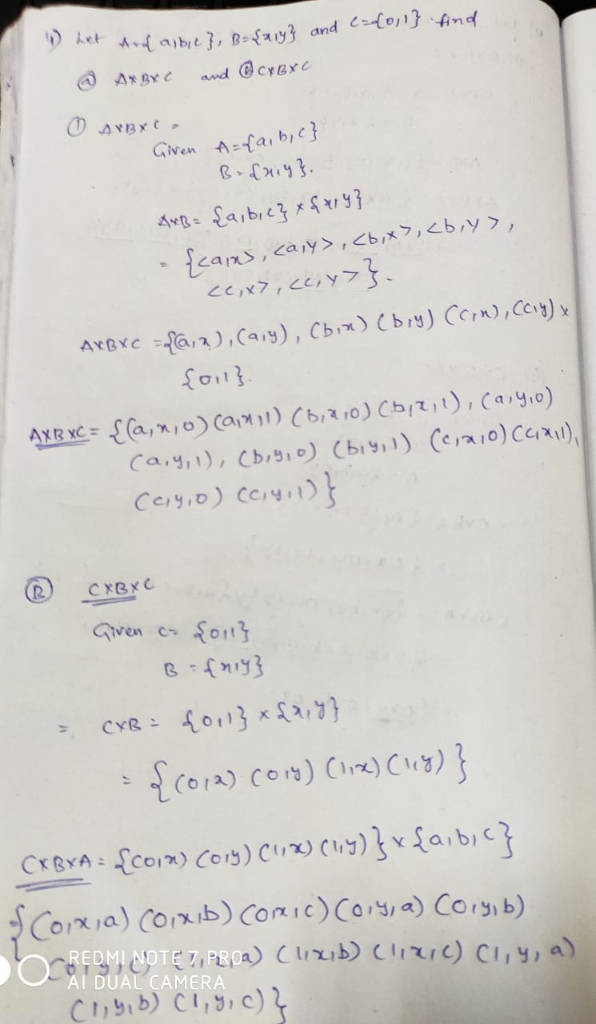 1) Let A={a,b,c}, B={x,y} and C={0,1} find
ⓐ A×B×C and Ⓑ C×B×C
① A×B×C =
Given A={a,b,c}
B={x,y}.
A×B= {a,b,c} × {x,y}
= {<a,x>, <a,y>, <b,x>, <b,y>,
<c,x>, <c,y>}.
A×B×C ={(a,x), (a,y), (b,x) (b,y) (c,x), (c,y) ×
{0,1}.
A×B×C = {(a,x,0) (a,x,1) (b,x,0) (b,x,1), (a,y,0)
(a,y,1), (b,y,0) (b,y,1) (c,x,0) (c,x,1),
(c,y,0) (c,y,1)}
Ⓑ C×B×C
Given C= {0,1}
B = {x,y}
= C×B = {0,1} × {x,y}
= {(0,x) (0,y) (1,x) (1,y)}
C×B×A = {(0,x) (0,y) (1,x) (1,y)} × {a,b,c}
{(0,x,a) (0,x,b) (0,x,c) (0,y,a) (0,y,b)
(0,y,c) (1,x,a) (1,x,b) (1,x,c) (1,y,a)
(1,y,b) (1,y,c)}
REDMI NOTE 7 PRO
AI DUAL CAMERA